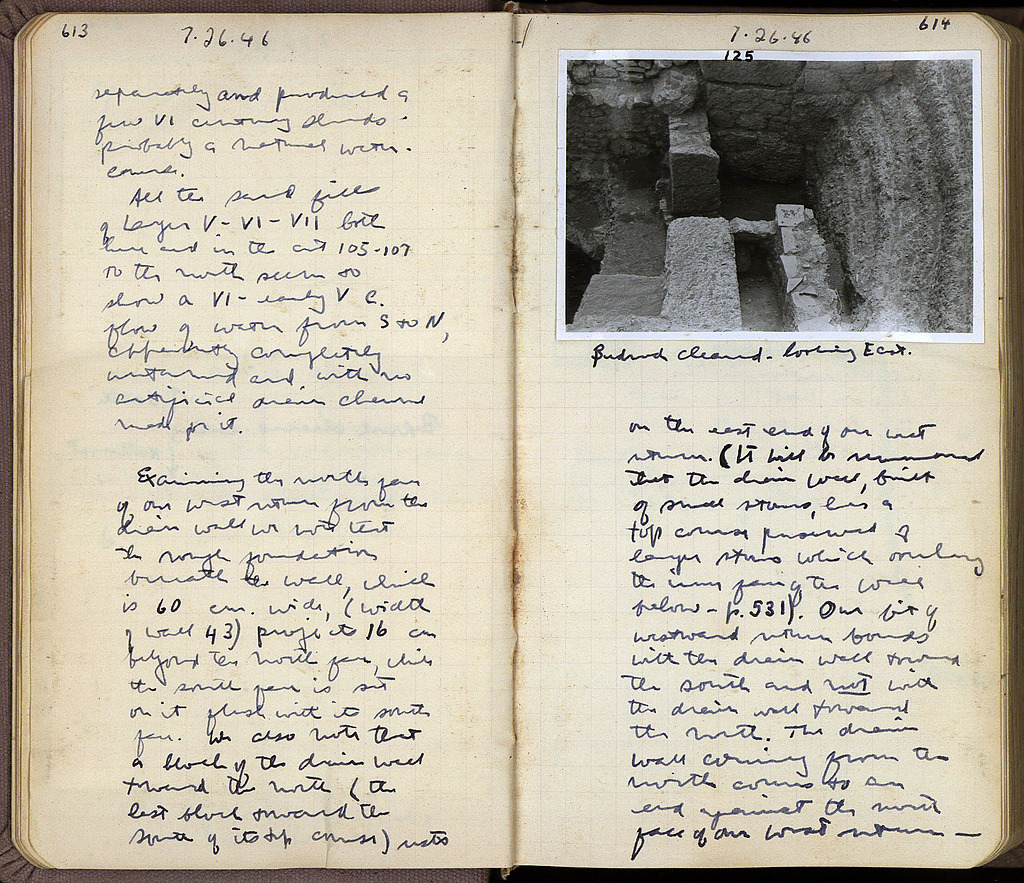 613
7.26.46
separately and produced a
few VI century sherds -
probably a natural water-
course.
All the sand fill
of Layers V-VI-VII both
here and in the cut 105-107
to the north seem to
show a VI-early V C.
flow of water from S to N,
apparently completely
untamed and with no
artificial drain channel
made for it.
Examining the north face
of our west return from the
drain wall we note that
the rough foundation
beneath the wall, which
is 60 cm. wide, (width
of wall 43) projects 16 cm
beyond the north face, while
the south face is set
on it flush with its south
face. We also note that
a block of the drain wall
toward the north (the
last block toward the
south of its top course) rests
7.26.46
614
125
Bedrock cleared - looking East.
on the east end of our west
return. (It will be remembered
that the drain wall, built
of small stones, has a
top course preserved of
larger stones which overhang
the inner face of the wall
below - p. 531). Our bit of
westward return bonds
with the drain wall toward
the south and not with
the drain wall toward
the north. The drain
wall coming from the
north comes to an
end against the north
face of our west return —